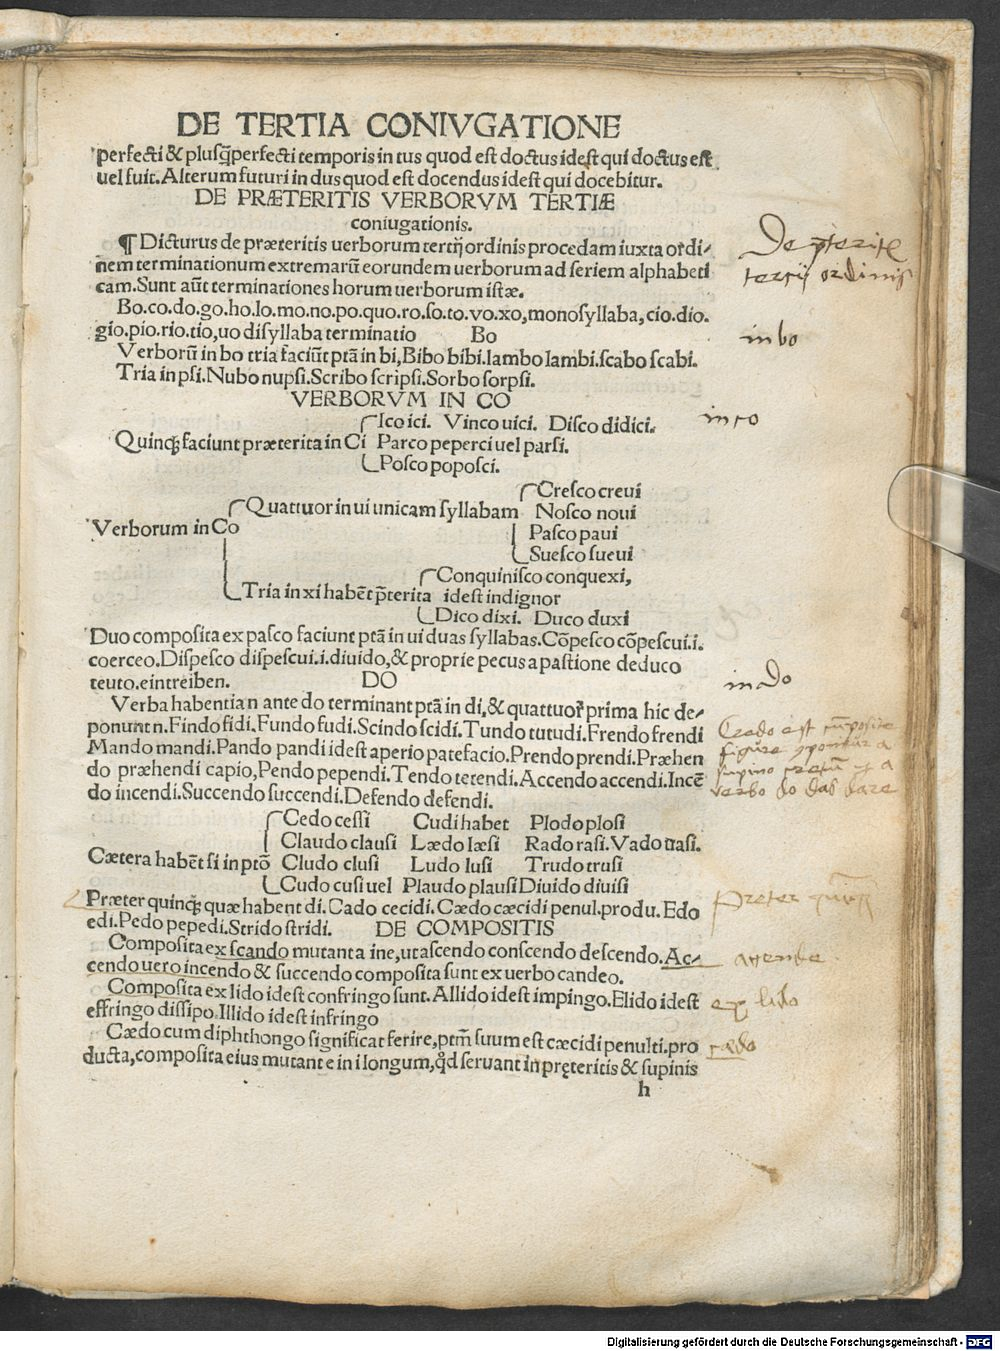 DE TERTIA CONIVGATIONE
perfecti & plusq̃perfecti temporis in tus quod est doctus idest qui doctus est
uel fuit. Alterum futuri in dus quod est docendus idest qui docebitur.
DE PRÆTERITIS VERBORVM TERTIÆ
coniugationis.
¶ Dicturus de præteritis uerborum tertij ordinis procedam iuxta ordi-
nem terminationum extremarũ eorundem uerborum ad seriem alphabeti
cam. Sunt aũt terminationes horum uerborum istæ.
Bo.co.do.go.ho.lo.mo.no.po.quo.ro.so.to.vo.xo, monosyllaba, cio.dio.
gio.pio.rio.tio, uo disyllaba terminatio Bo
Verborũ in bo tria faciũt ptã in bi, Bibo bibi. lambo lambi. scabo scabi.
Tria in psi. Nubo nupsi. Scribo scripsi. Sorbo sorpsi.
VERBORVM IN CO
Ico ici. Vinco uici. Disco didici.
Quinq; faciunt præterita in Ci Parco peperci uel parsi.
Posco poposci.
Cresco creui
Quattuor in ui unicam syllabam Nosco noui
Verborum in Co Pasco paui
Suesco sueui
Conquinisco conquexi,
Tria in xi habẽt p̃terita idest indignor
Dico dixi. Duco duxi
Duo composita ex pasco faciunt ptã in ui duas syllabas. Cõpesco cõpescui.i.
coerceo. Dispesco dispescui.i.diuido, & proprie pecus a pastione deduco
teuto. eintreiben. DO
Verba habentia n ante do terminant ptã in di, & quattuor prima hic de-
ponunt n. Findo fidi. Fundo fudi. Scindo scidi. Tundo tutudi. Frendo frendi
Mando mandi. Pando pandi idest aperio patefacio. Prendo prendi. Præhen
do præhendi capio, Pendo pependi. Tendo tetendi. Accendo accendi. Incẽ
do incendi. Succendo succendi. Defendo defendi.
Cedo cessi Cudi habet Plodo plosi
Claudo clausi Lædo læsi Rado rasi. Vado uasi.
Cætera habẽt si in ptõ Cludo clusi Ludo lusi Trudo trusi
Cudo cusi uel Plaudo plausi Diuido diuisi
Præter quinq; quæ habent di. Cado cecidi. Cædo cæcidi penul. produ. Edo
edi. Pedo pepedi. Strido stridi. DE COMPOSITIS
Composita ex scando mutant a in e, ut ascendo conscendo descendo. Ac-
cendo uero incendo & succendo composita sunt ex uerbo candeo.
Composita ex lido idest confringo sunt. Allido idest impingo. Elido idest
effringo dissipo. Illido idest infringo
Cædo cum diphthongo significat ferire, ptm̃ suum est cæcidi penulti. pro
ducta, composita eius mutant e in i longum, qd̃ seruant in pręteritis & supinis
h
De p̃terit
tertij ordinis
in bo
in co
in do
verbo do das dare
ex lido
cædo
Digitalisierung gefördert durch die Deutsche Forschungsgemeinschaft - DFG